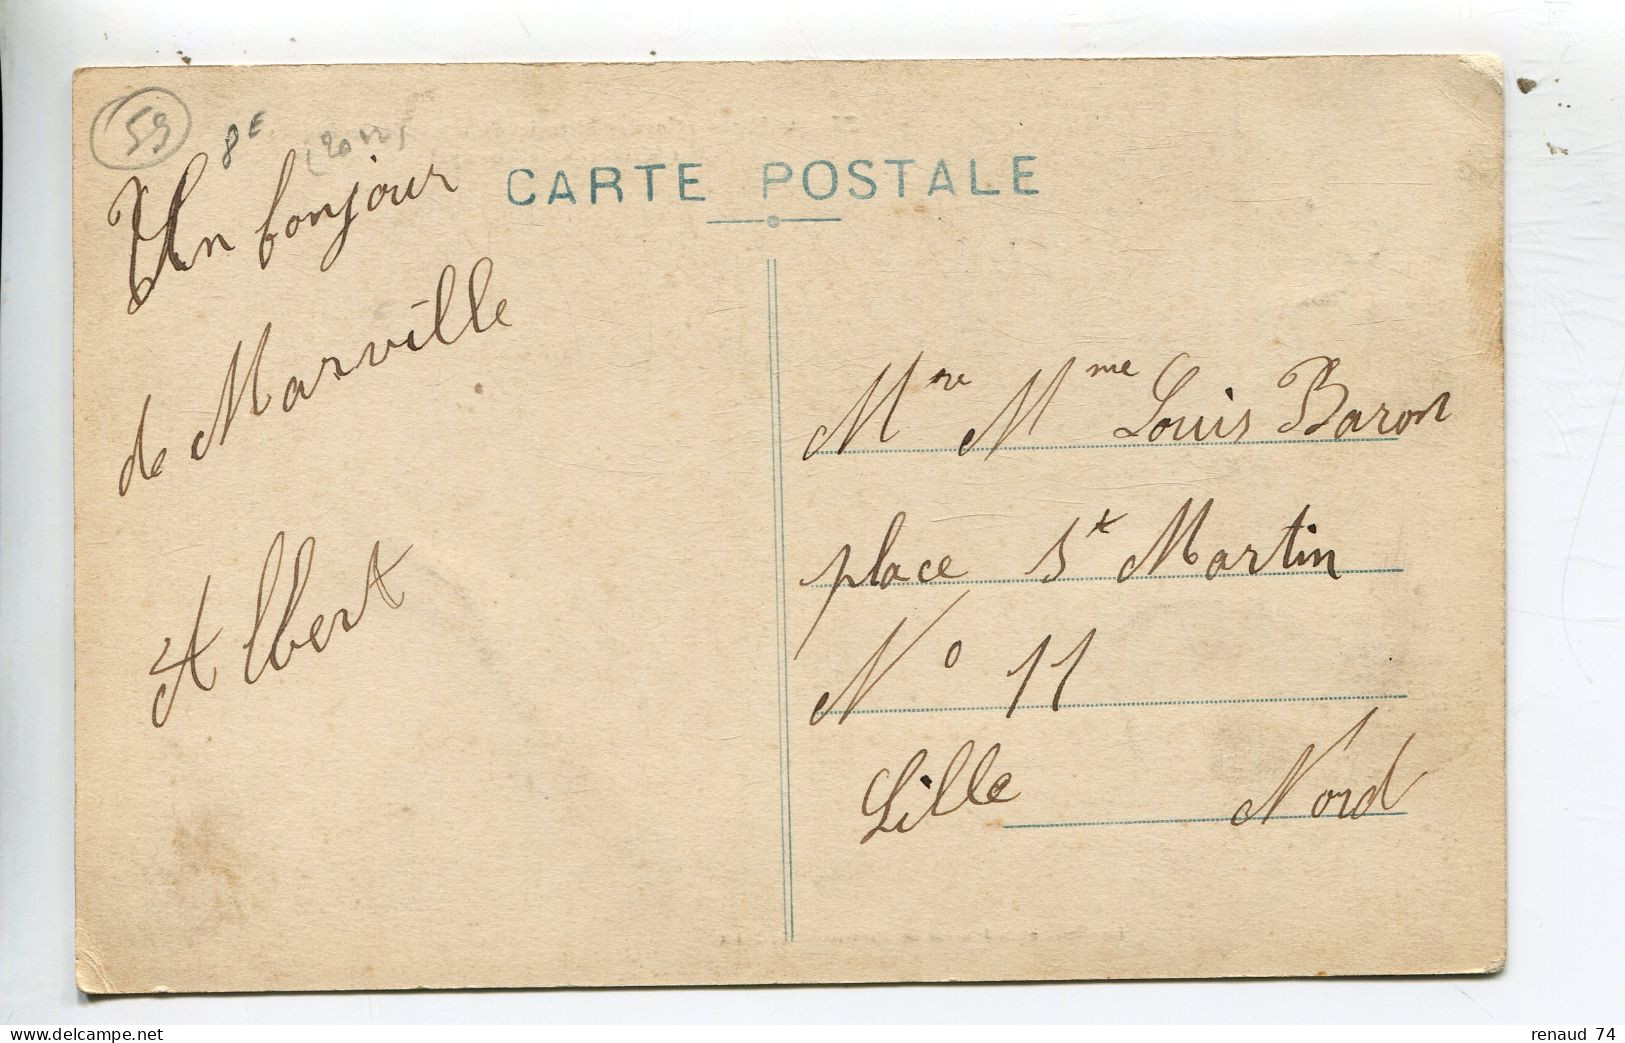 59
8E
CARTE POSTALE
Un bonjour
de Marville
Albert
Mre Mme Louis Baron
place St Martin
No 11
Lille Nord
renaud 74